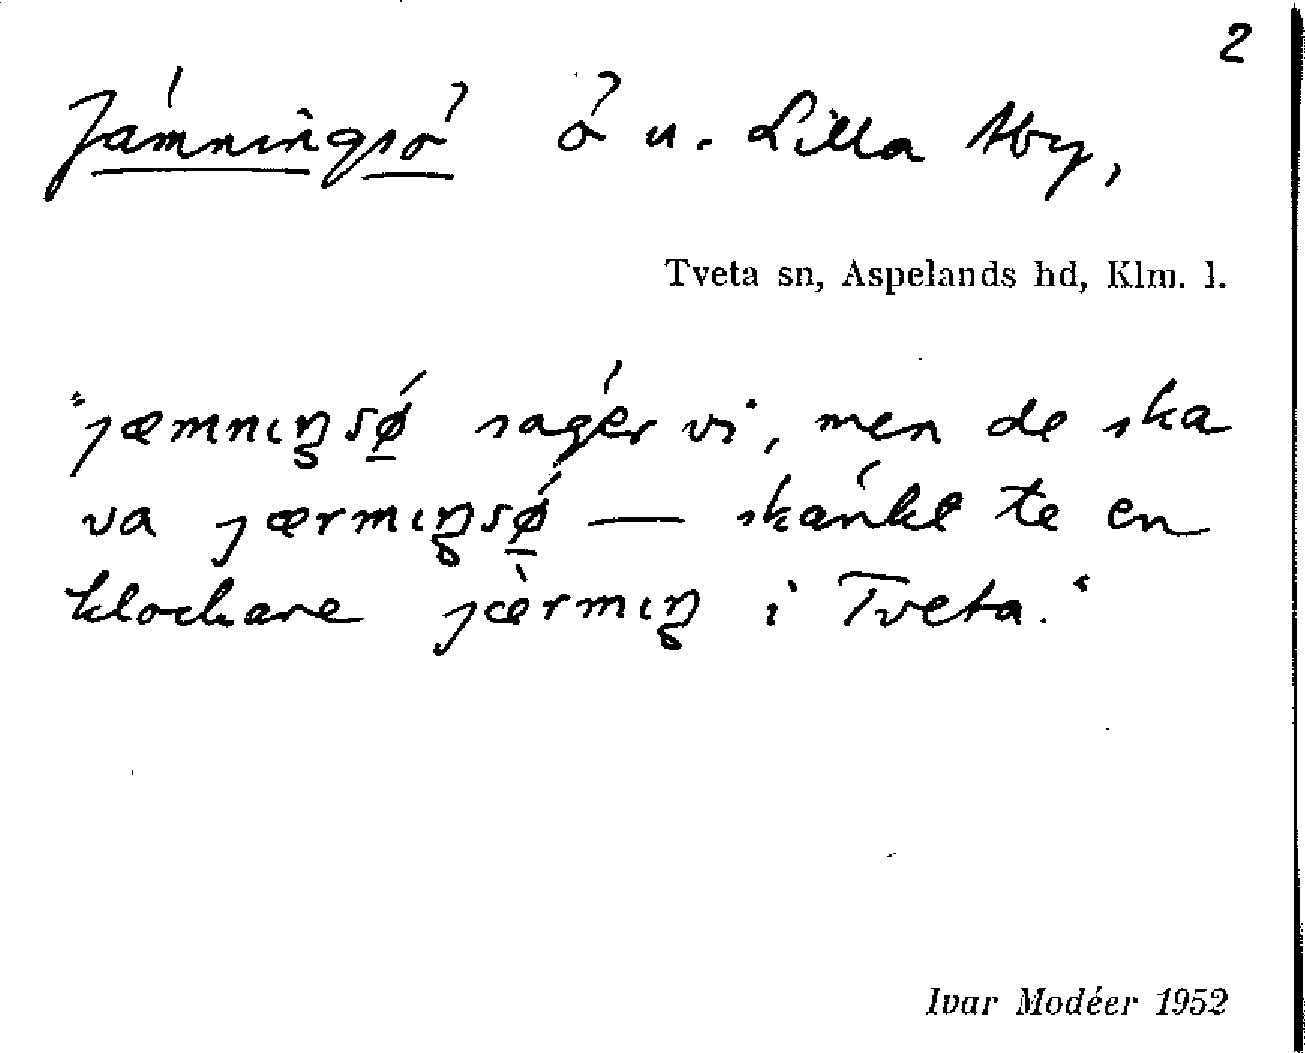 2
Jämningsö ö u. Lilla Aby,
Tveta sn, Aspelands hd, Klm. l.
"jæmnɩŋsǿ̱ säger vi, men de ska
va jærmɩŋsǿ̱ — skänkt te en
klockare jæ̀rmɩŋ i Tveta."
Ivar Modéer 1952